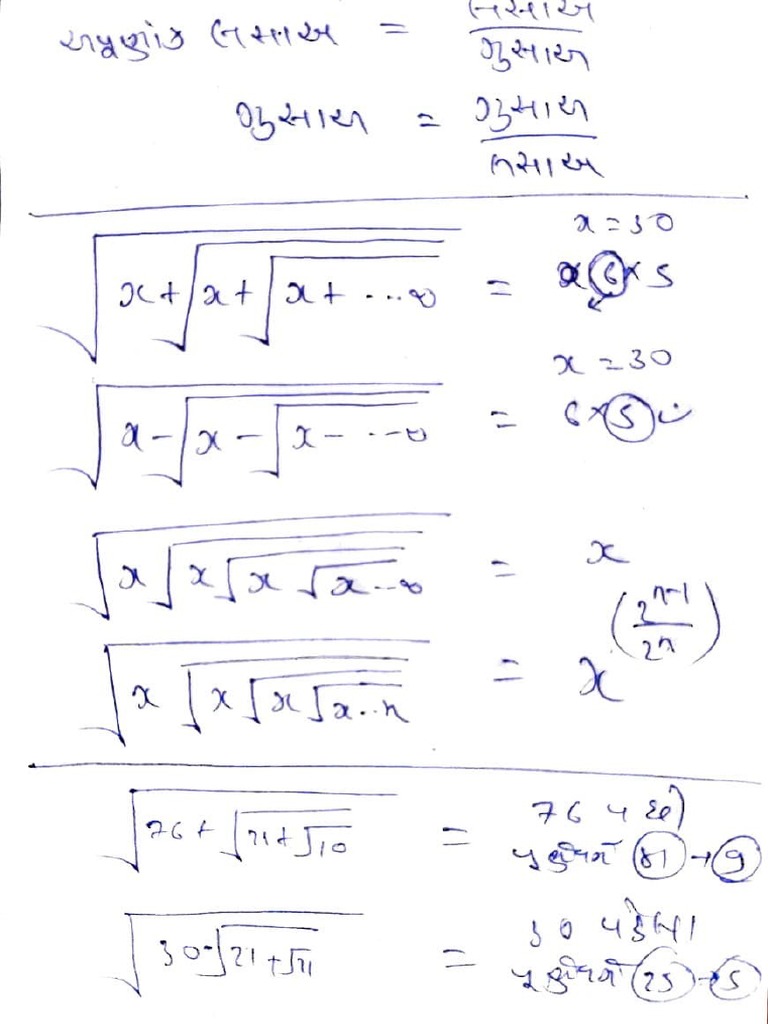 અપૂર્ણાંક લસાઅ = લસાઅ / ગુસાઅ
ગુસાઅ = ગુસાઅ / લસાઅ
x = 30
√(x + √(x + √(x + ...∞))) = 6 × 5
x = 30
√(x - √(x - √(x - ...∞))) = 6 × 5
√(x √(x √(x √(x ...∞)))) = x
√(x √(x √(x √(x ..n)))) = x^((2^(n-1))/(2^n))
√(76 + √(21 + √10)) = 76 પછી
પૂર્ણવર્ગ 81 → 9
√(30 - √(21 + √21)) = 30 પહેલા
પૂર્ણવર્ગ 25 → 5